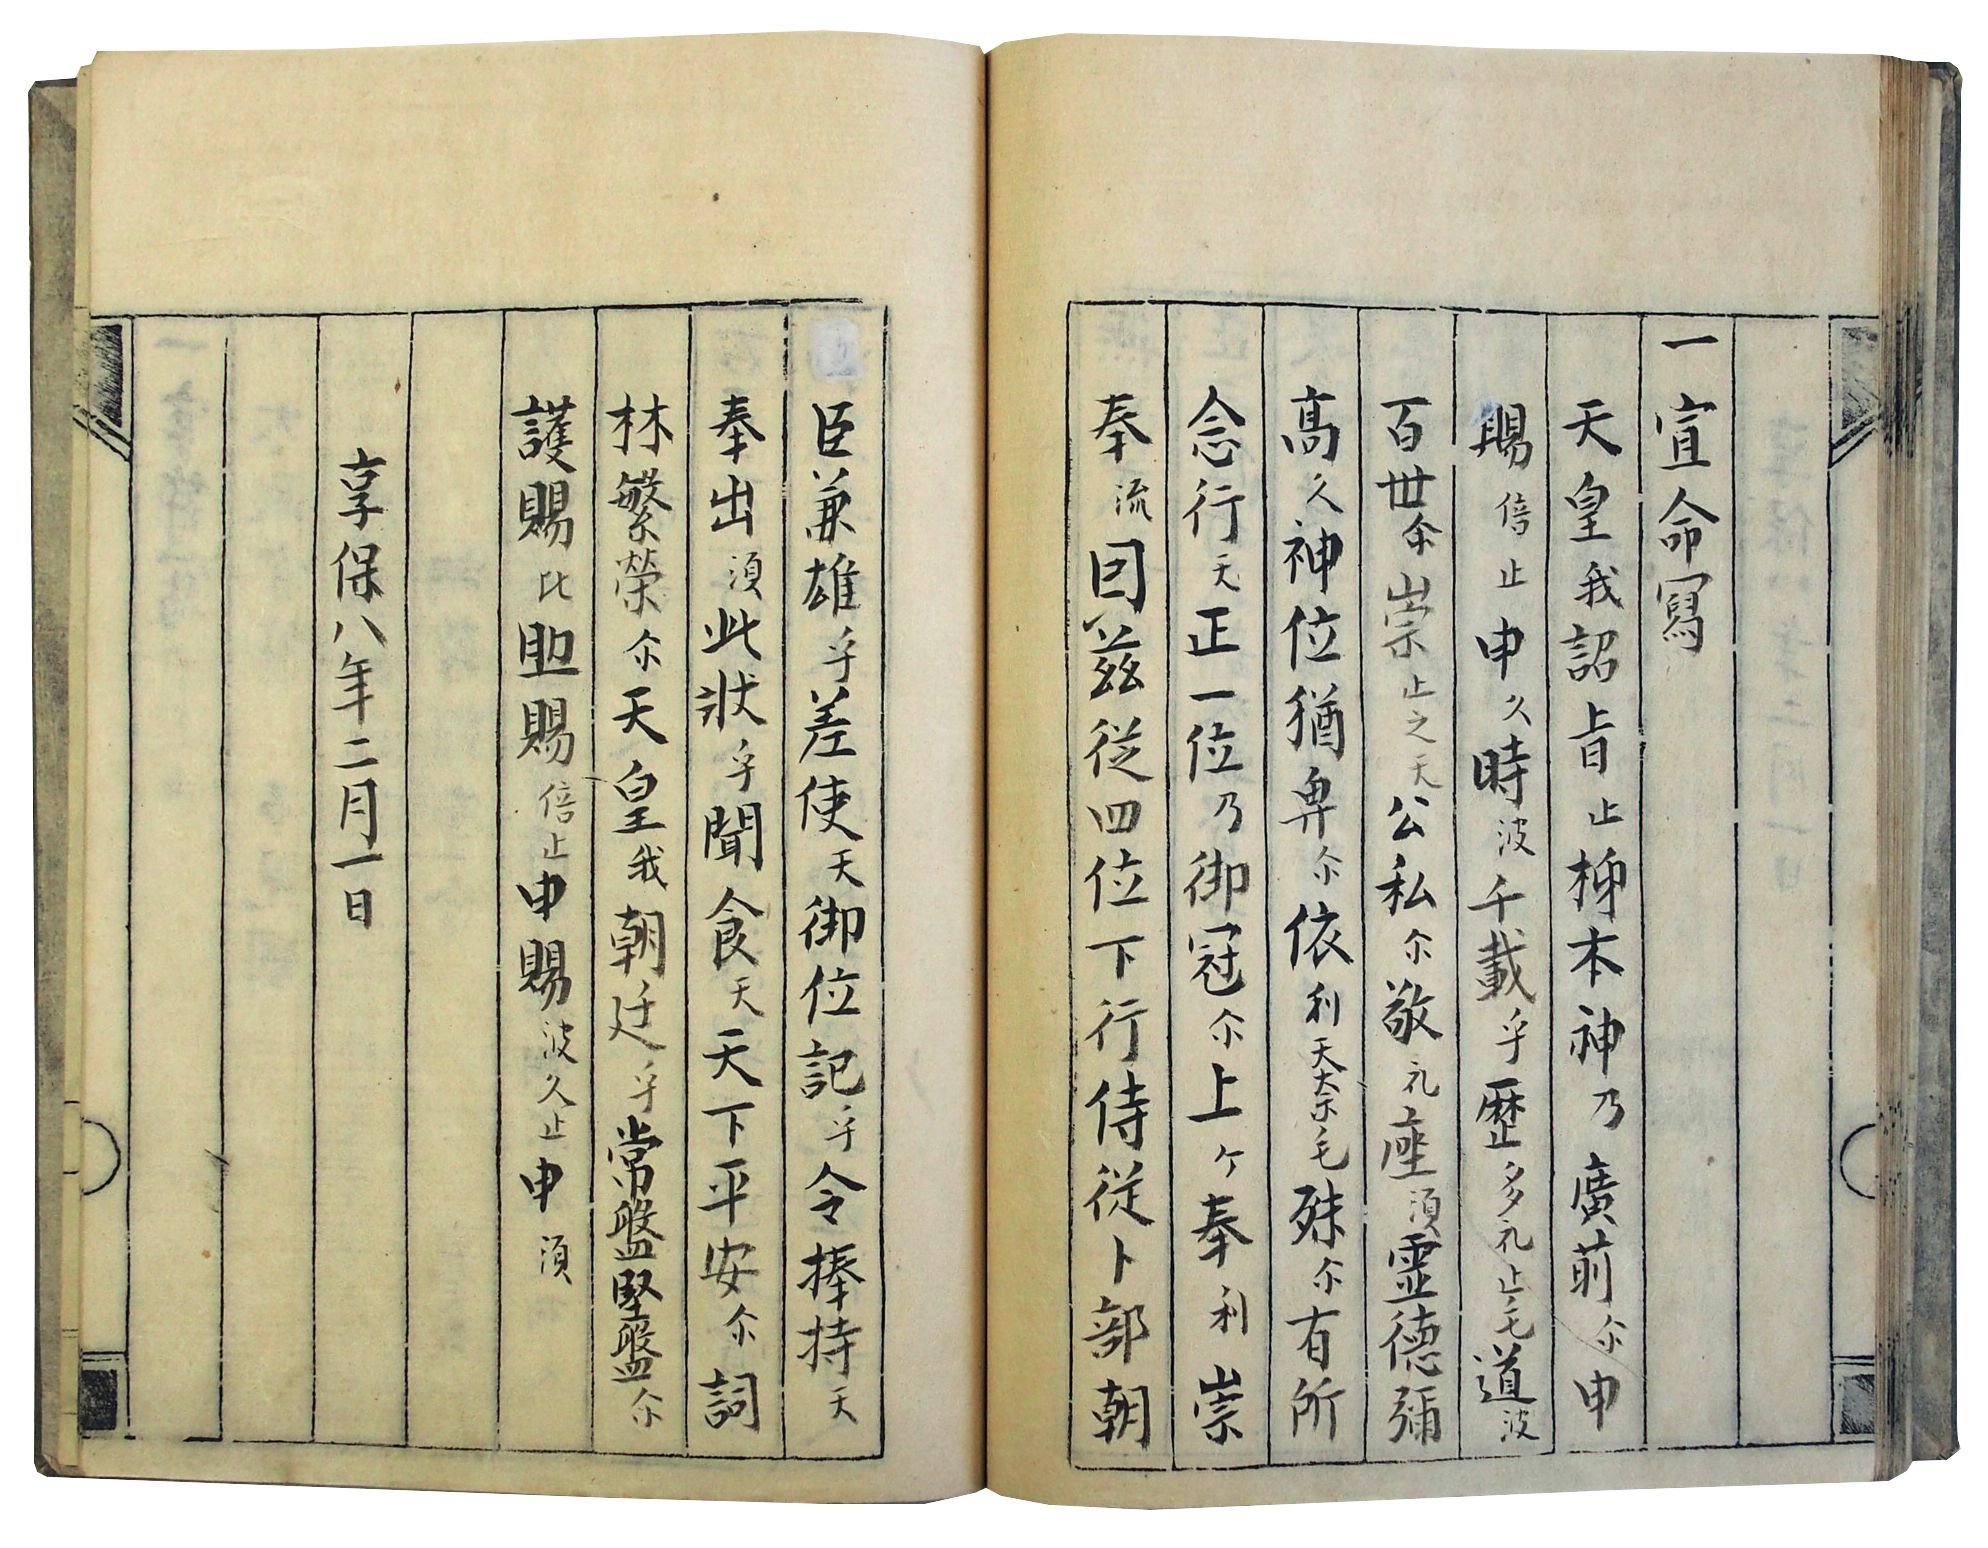 一宣命寫
天皇我詔旨止柹本神乃廣前尓申
賜倍止申久時波千載乎歴多礼止毛道波
百世尓崇止之天公私尓敬礼座須霊德彌
高久神位猶卑尓依利天奈毛殊尓有所
念行天正一位乃御冠尓上ケ奉利崇
奉流因茲従四位下行侍従卜部朝
臣兼雄乎差使天御位記乎令捧持天
奉出須此狀乎聞食天天下平安尓詞
林繁榮尓天皇我朝廷乎常盤堅盤尓
護賜比助賜倍止申賜波久止申須
享保八年二月一日